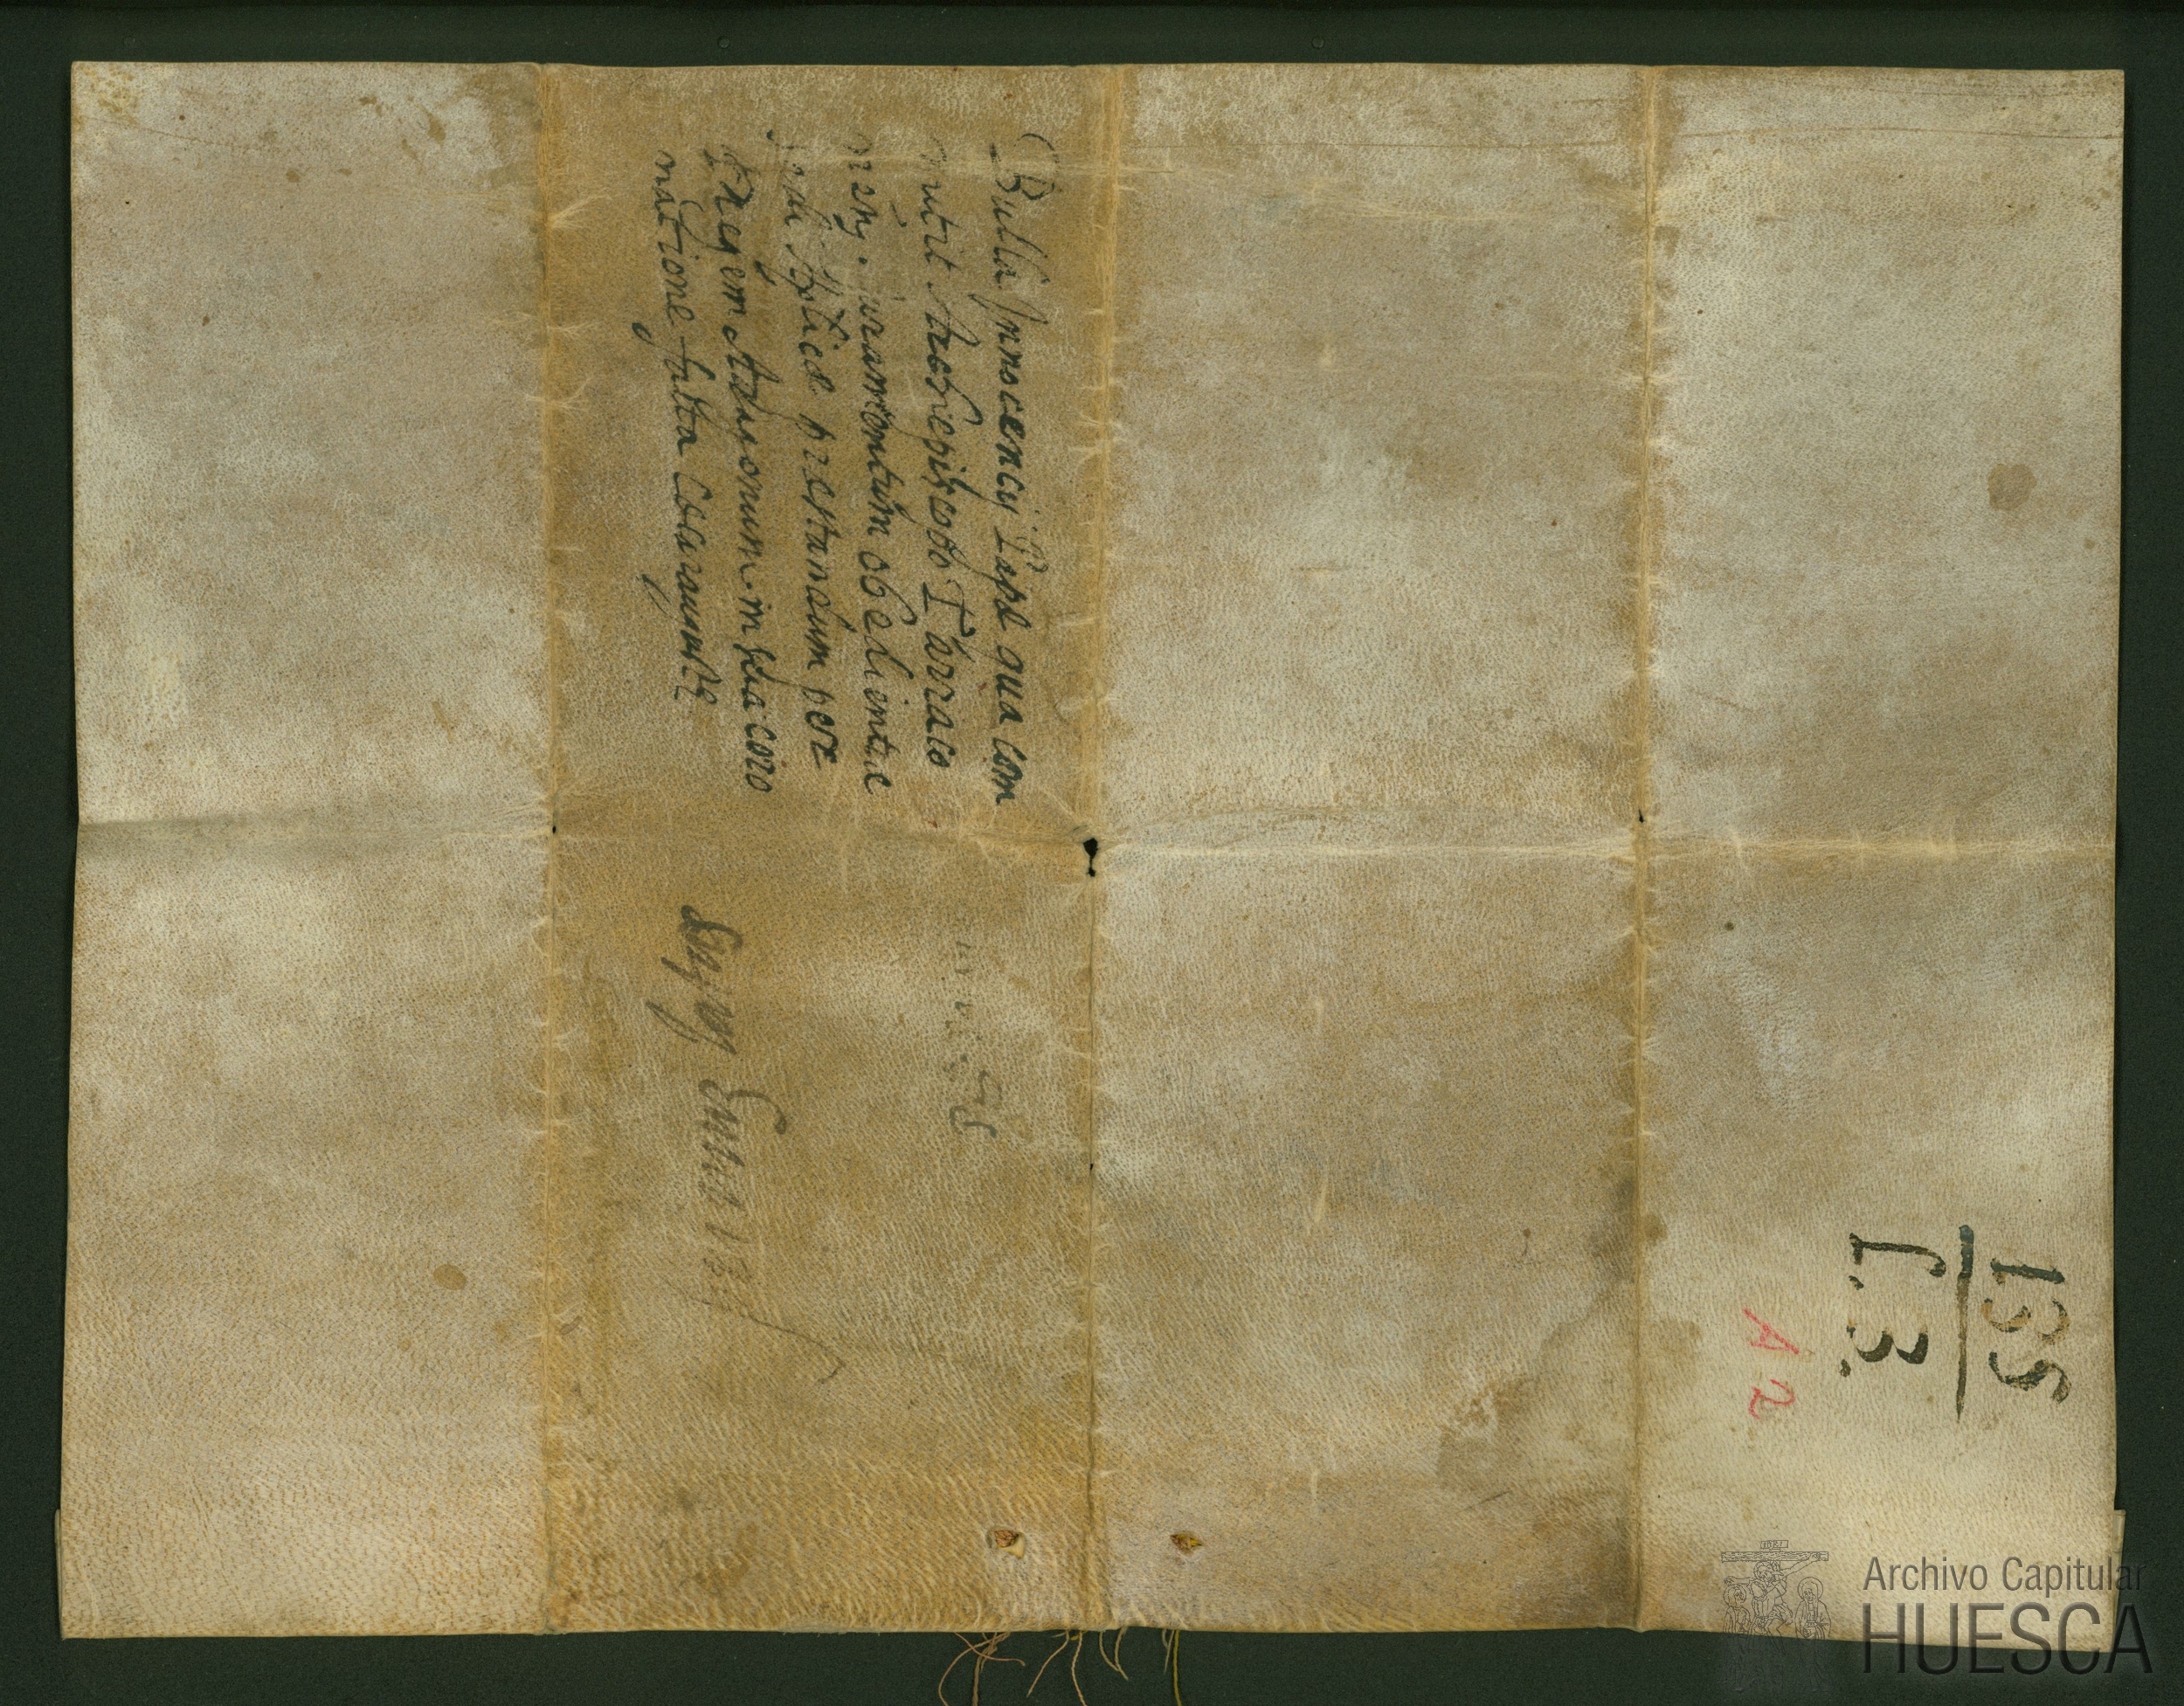 Bulla Innocencij Papę qua com
mittit Archiepiscopo Tarraco
nẽñ. iuramentum obedientie
Sedi Apticę prestandum per
Regem Aragonum in sua coro
natione fatta Cesarauguste
155
I. 3.
A 2
Archivo Capitular
HUESCA